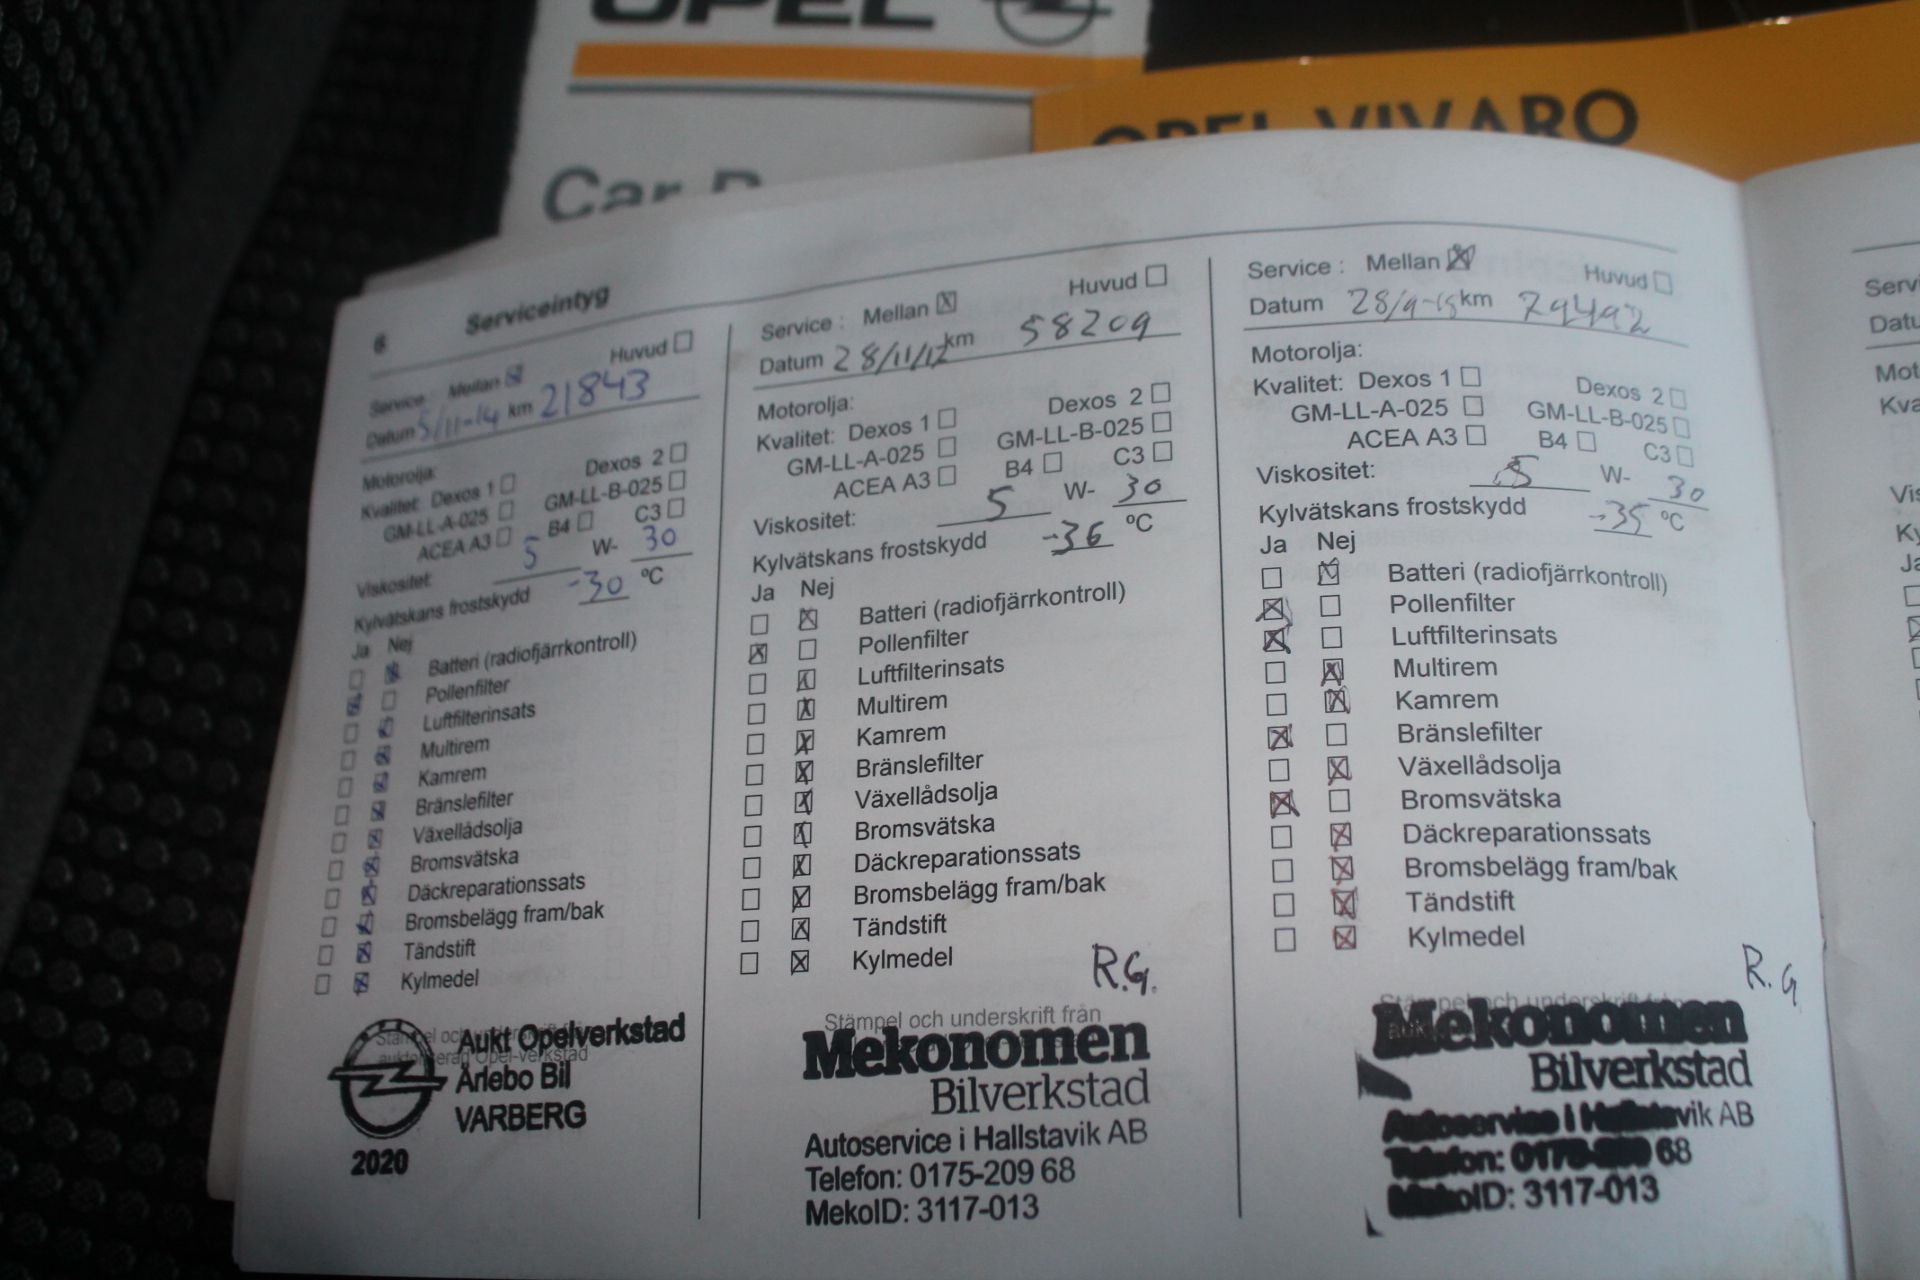 OPEL
OPEL VIVARO
Car
6 Serviceintyg
Service : Mellan Huvud
Datum 5/11-14 km 21843
Motorolja:
Kvalitet: Dexos 1 Dexos 2
GM-LL-A-025 GM-LL-B-025
ACEA A3 B4 C3
Viskositet: 5 W- 30
Kylvätskans frostskydd -30 ºC
Ja Nej
Batteri (radiofjärrkontroll)
Pollenfilter
Luftfilterinsats
Multirem
Kamrem
Bränslefilter
Växellådsolja
Bromsvätska
Däckreparationssats
Bromsbelägg fram/bak
Tändstift
Kylmedel
Aukt Opelverkstad
Ärlebo Bil
VARBERG
2020
Service : Mellan Huvud
Datum 28/11/ km 58209
Motorolja:
Kvalitet: Dexos 1 Dexos 2
GM-LL-A-025 GM-LL-B-025
ACEA A3 B4 C3
Viskositet: 5 W- 30
Kylvätskans frostskydd -36 ºC
Ja Nej
Batteri (radiofjärrkontroll)
Pollenfilter
Luftfilterinsats
Multirem
Kamrem
Bränslefilter
Växellådsolja
Bromsvätska
Däckreparationssats
Bromsbelägg fram/bak
Tändstift
Kylmedel
R.G.
Stämpel och underskrift från
Mekonomen
Bilverkstad
Autoservice i Hallstavik AB
Telefon: 0175-209 68
MekoID: 3117-013
Service : Mellan Huvud
Datum 28/9-18 km 79492
Motorolja:
Kvalitet: Dexos 1 Dexos 2
GM-LL-A-025 GM-LL-B-025
ACEA A3 B4 C3
Viskositet: 5 W- 30
Kylvätskans frostskydd -35 ºC
Ja Nej
Batteri (radiofjärrkontroll)
Pollenfilter
Luftfilterinsats
Multirem
Kamrem
Bränslefilter
Växellådsolja
Bromsvätska
Däckreparationssats
Bromsbelägg fram/bak
Tändstift
Kylmedel
R.G.
Stämpel och underskrift från
Mekonomen
Bilverkstad
Autoservice i Hallstavik AB
Telefon: 0175-209 68
MekoID: 3117-013